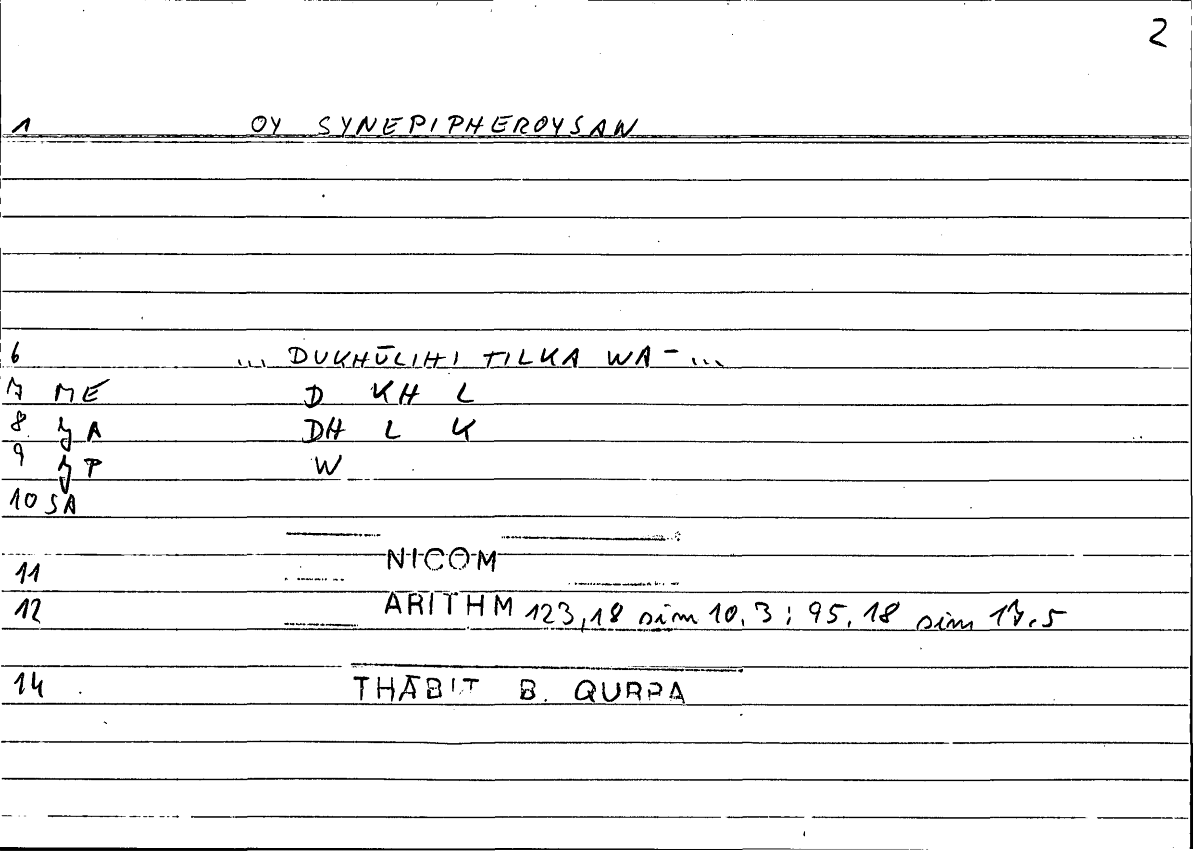 2
1 OY SYNEPIPHEROYSAN
6 ... DUKHŪLIHI TILKA WA- ...
7 ME D KH L
8 ZA DH L K
9 ZP W
10 SA
11 NICOM
12 ARITHM 123,18 sim 10,3; 95,18 sim 17,5
14 THĀBIT B. QURRA